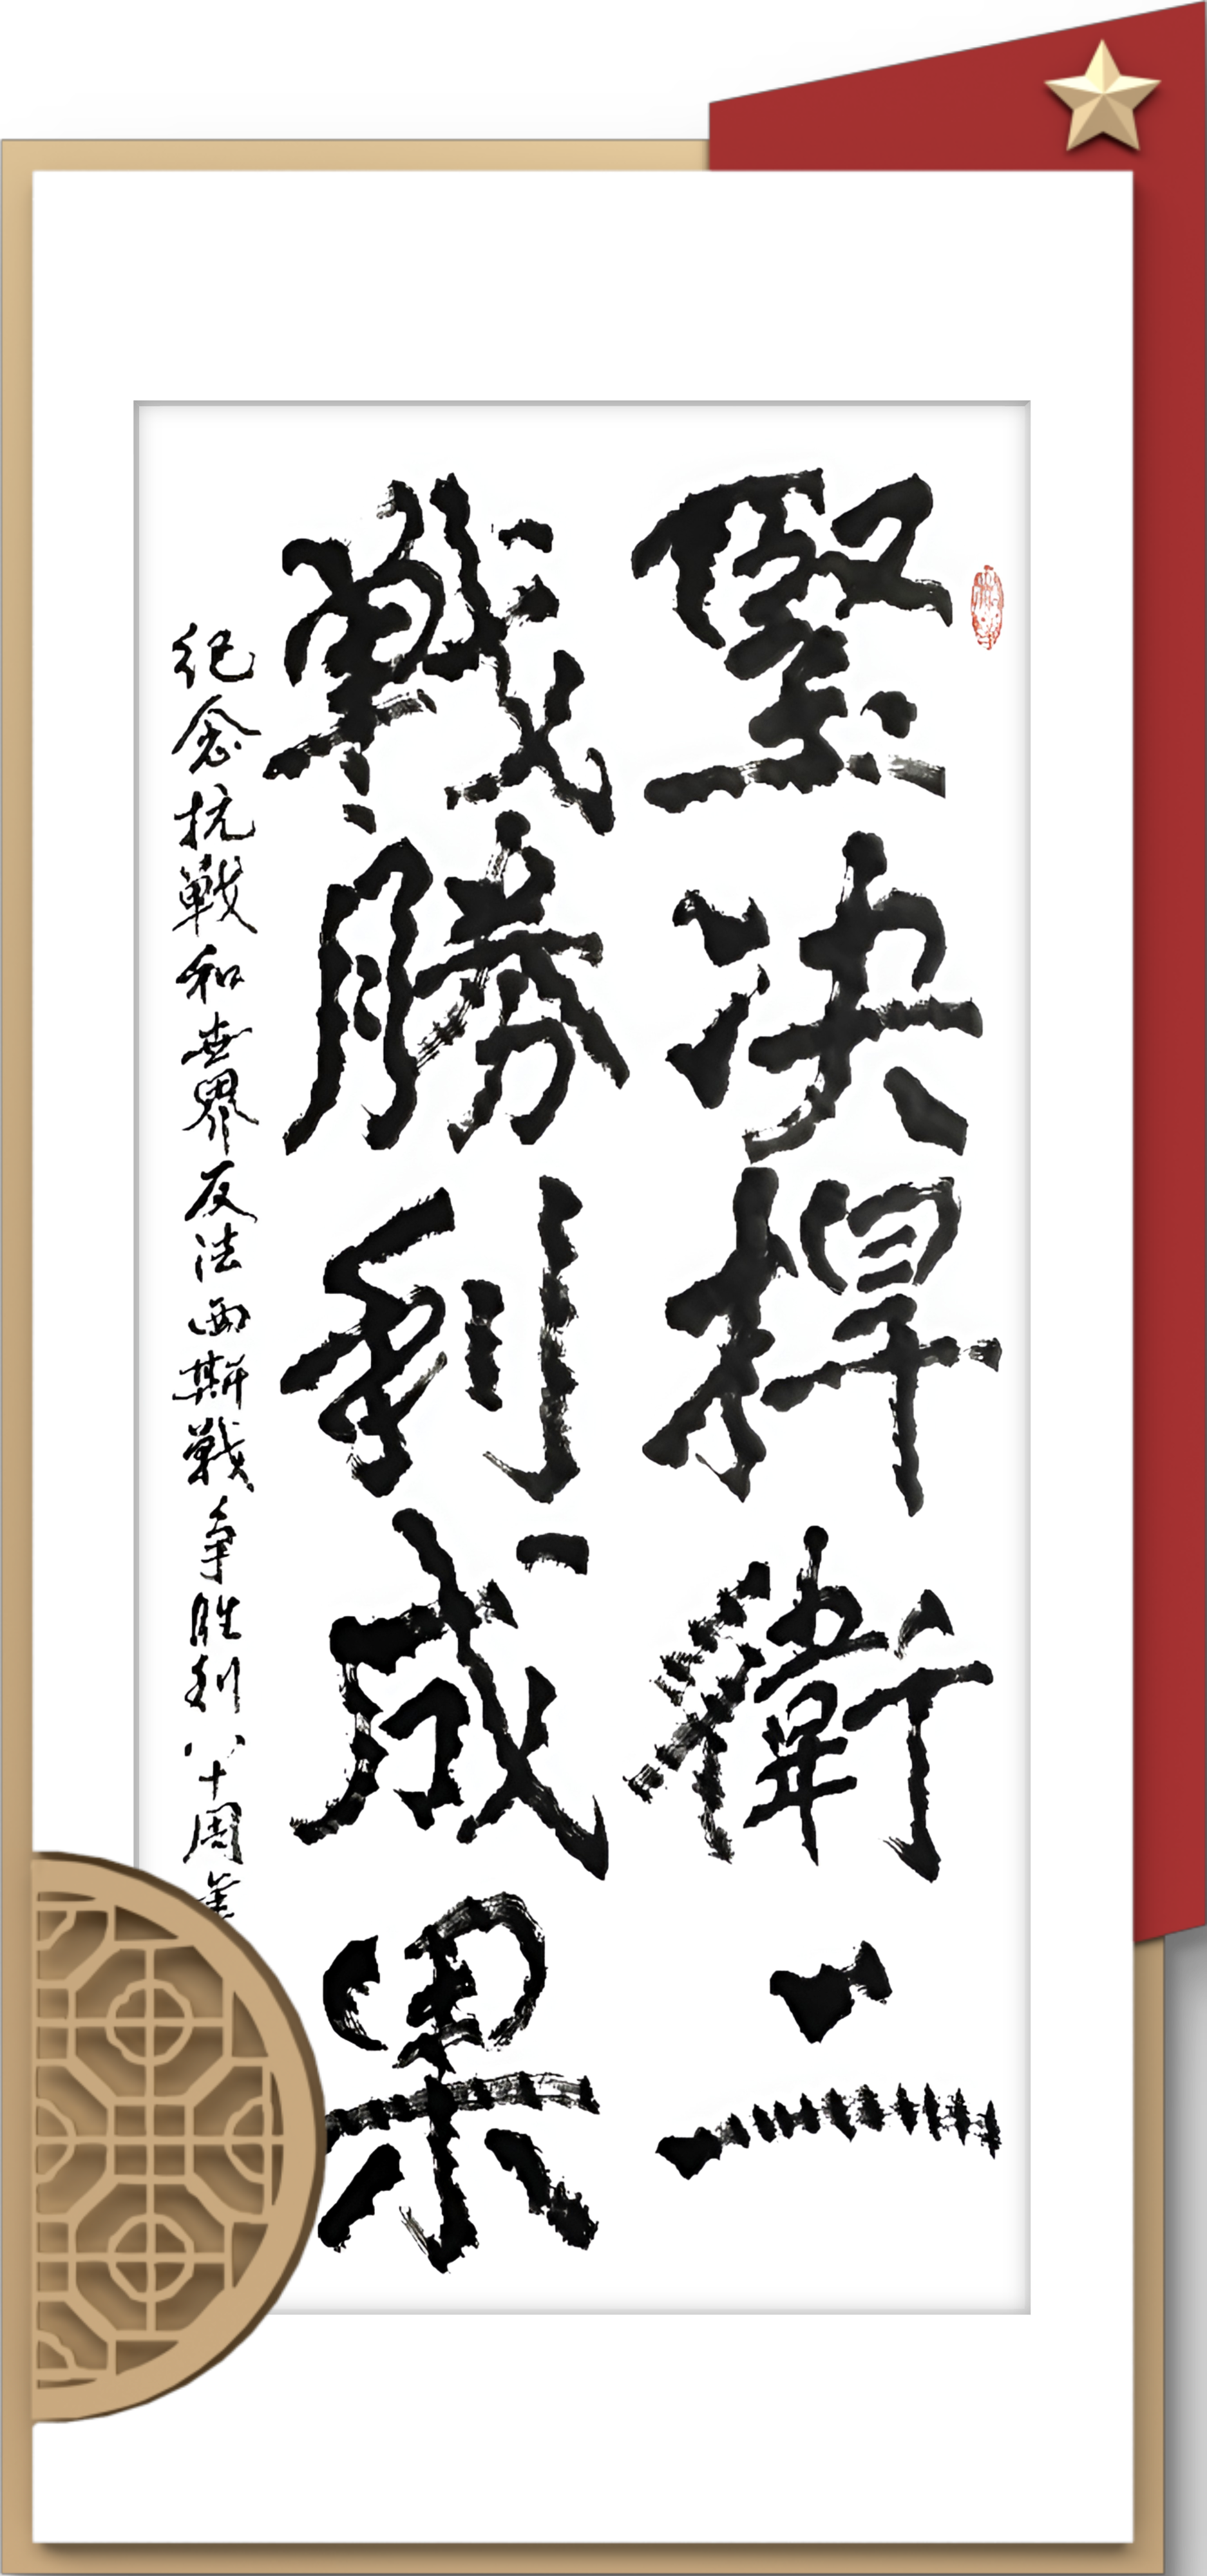 堅决捍衛二
戰勝利成果
纪念抗戰和世界反法西斯戰争胜利八十周